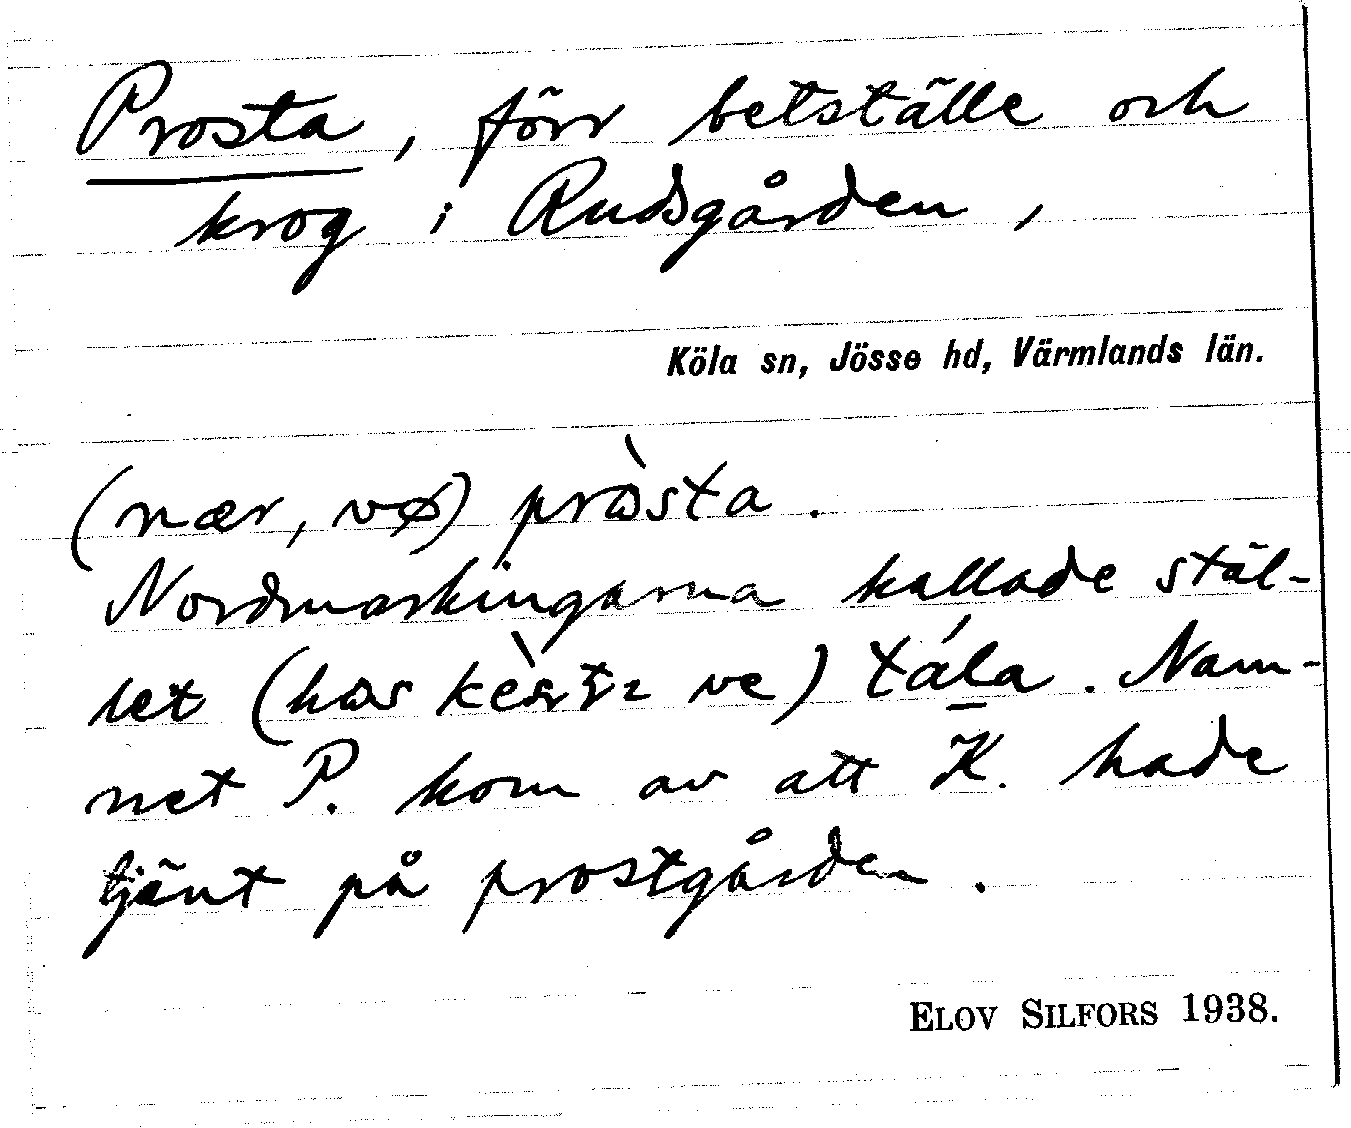 Prosta, förr betställe och
krog i Rudsgården,
Köla sn, Jösse hd, Värmlands län.
(nær, vø) pròsta.
Nordmarkingarna kallade stäl-
let (hos ve) tála. Nam-
net P. kom av att K. hade
tjänt på prostgården.
ELOV SILFORS 1938.